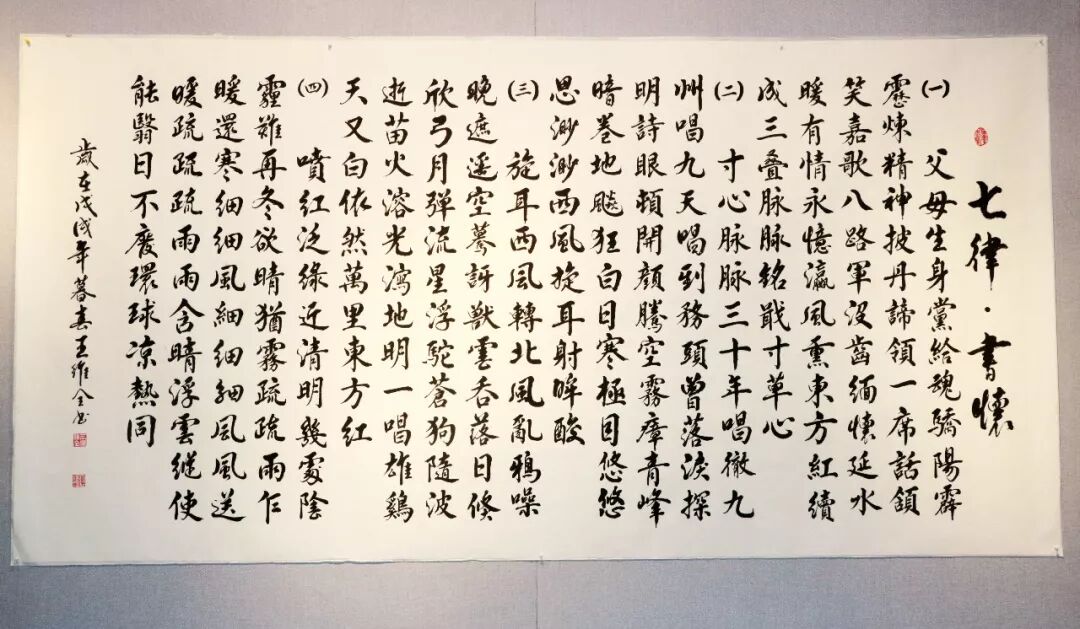 七律·書懷
(一) 父母生身黨給魂驕陽霹
靂煉精神披丹諦領一席話頷
笑嘉歌八路軍沒齒緬懷延水
暖有情永憶瀛風熏東方紅續
成三叠脉脉銘戢寸草心
(二) 寸心脉脉三十年唱徹九
州唱九天唱到務頭曾落淚探
明詩眼頓開顏騰空霧瘴青峰
暗卷地飈狂白日寒極目悠悠
思渺渺西風旋耳射眸酸
(三) 旋耳西風轉北風亂鴉噪
晚遮遥空驀訝獸雲吞落日倏
欣弓月弹流星浮駝蒼狗隨波
逝苗火溶光瀉地明一唱雄鷄
天又白依然萬里東方紅
(四) 噴紅泛綠近清明幾處陰
霾難再冬欲晴猶霧疏疏雨乍
暖還寒細細風細細細風風送
暖疏疏疏雨雨含晴浮雲縱使
能翳日不廢環球凉熱同
歲在戊戌年暮春王維全书